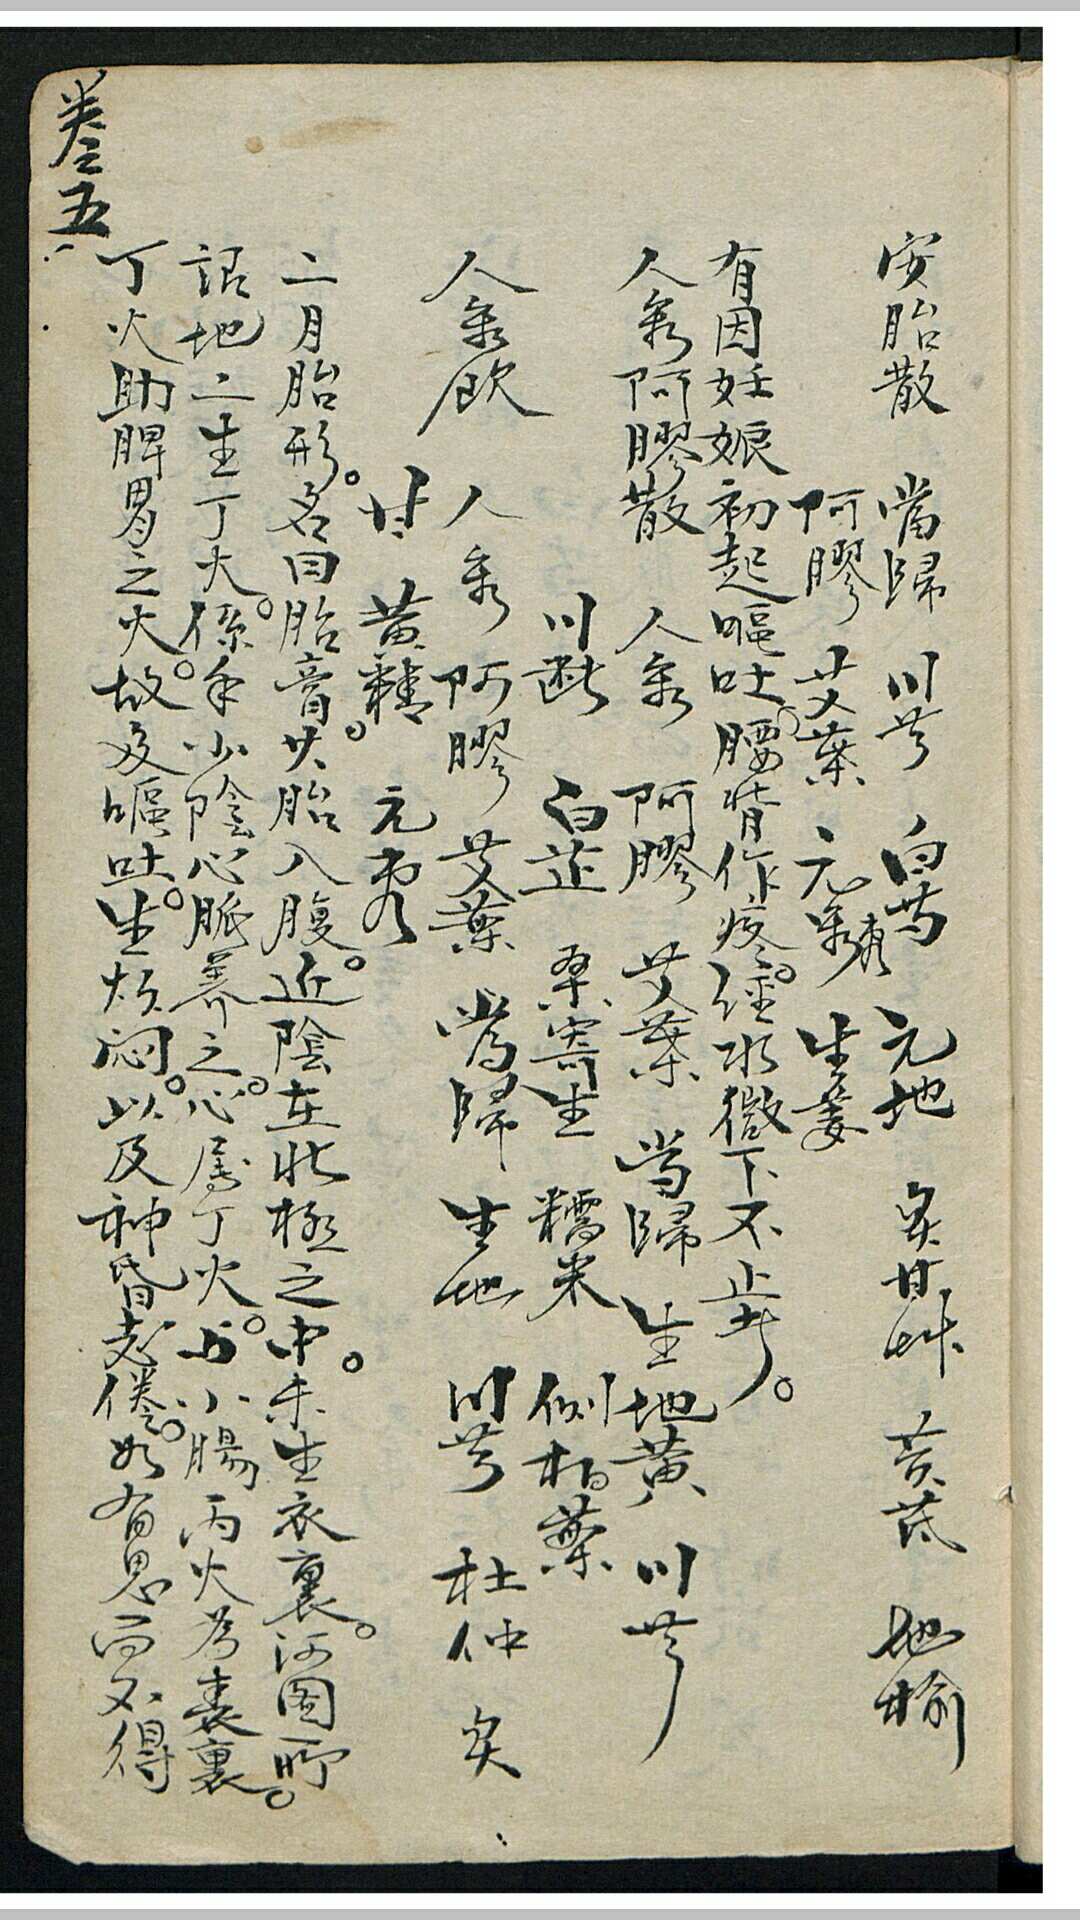 安胎散　當歸　川芎　白芍　元地　炙甘艸　黃芪　地榆
阿膠　艾葉　元參　生姜
有因妊娠初起嘔吐腰背作疼。經水微下不止者。
人參阿膠散　人參　阿膠　艾葉　當歸　生地黃　川芎
川斷　白芷　桑寄生　糯米　側柏葉
人參飲　人參　阿膠　艾葉　當歸　生地　川芎　杜仲　炙
甘　黃精　元棗
二月胎形。名曰胎膏。其胎入腹。近陰在北極之中。未生衣裏。河圖所
謂地二生丁火。係手少陰心脈養之。心屬丁火。与小腸丙火為表裏。
丁火助脾胃之火。故反嘔吐。生煩悶。以及神昏志倦。如有思而不得
卷五